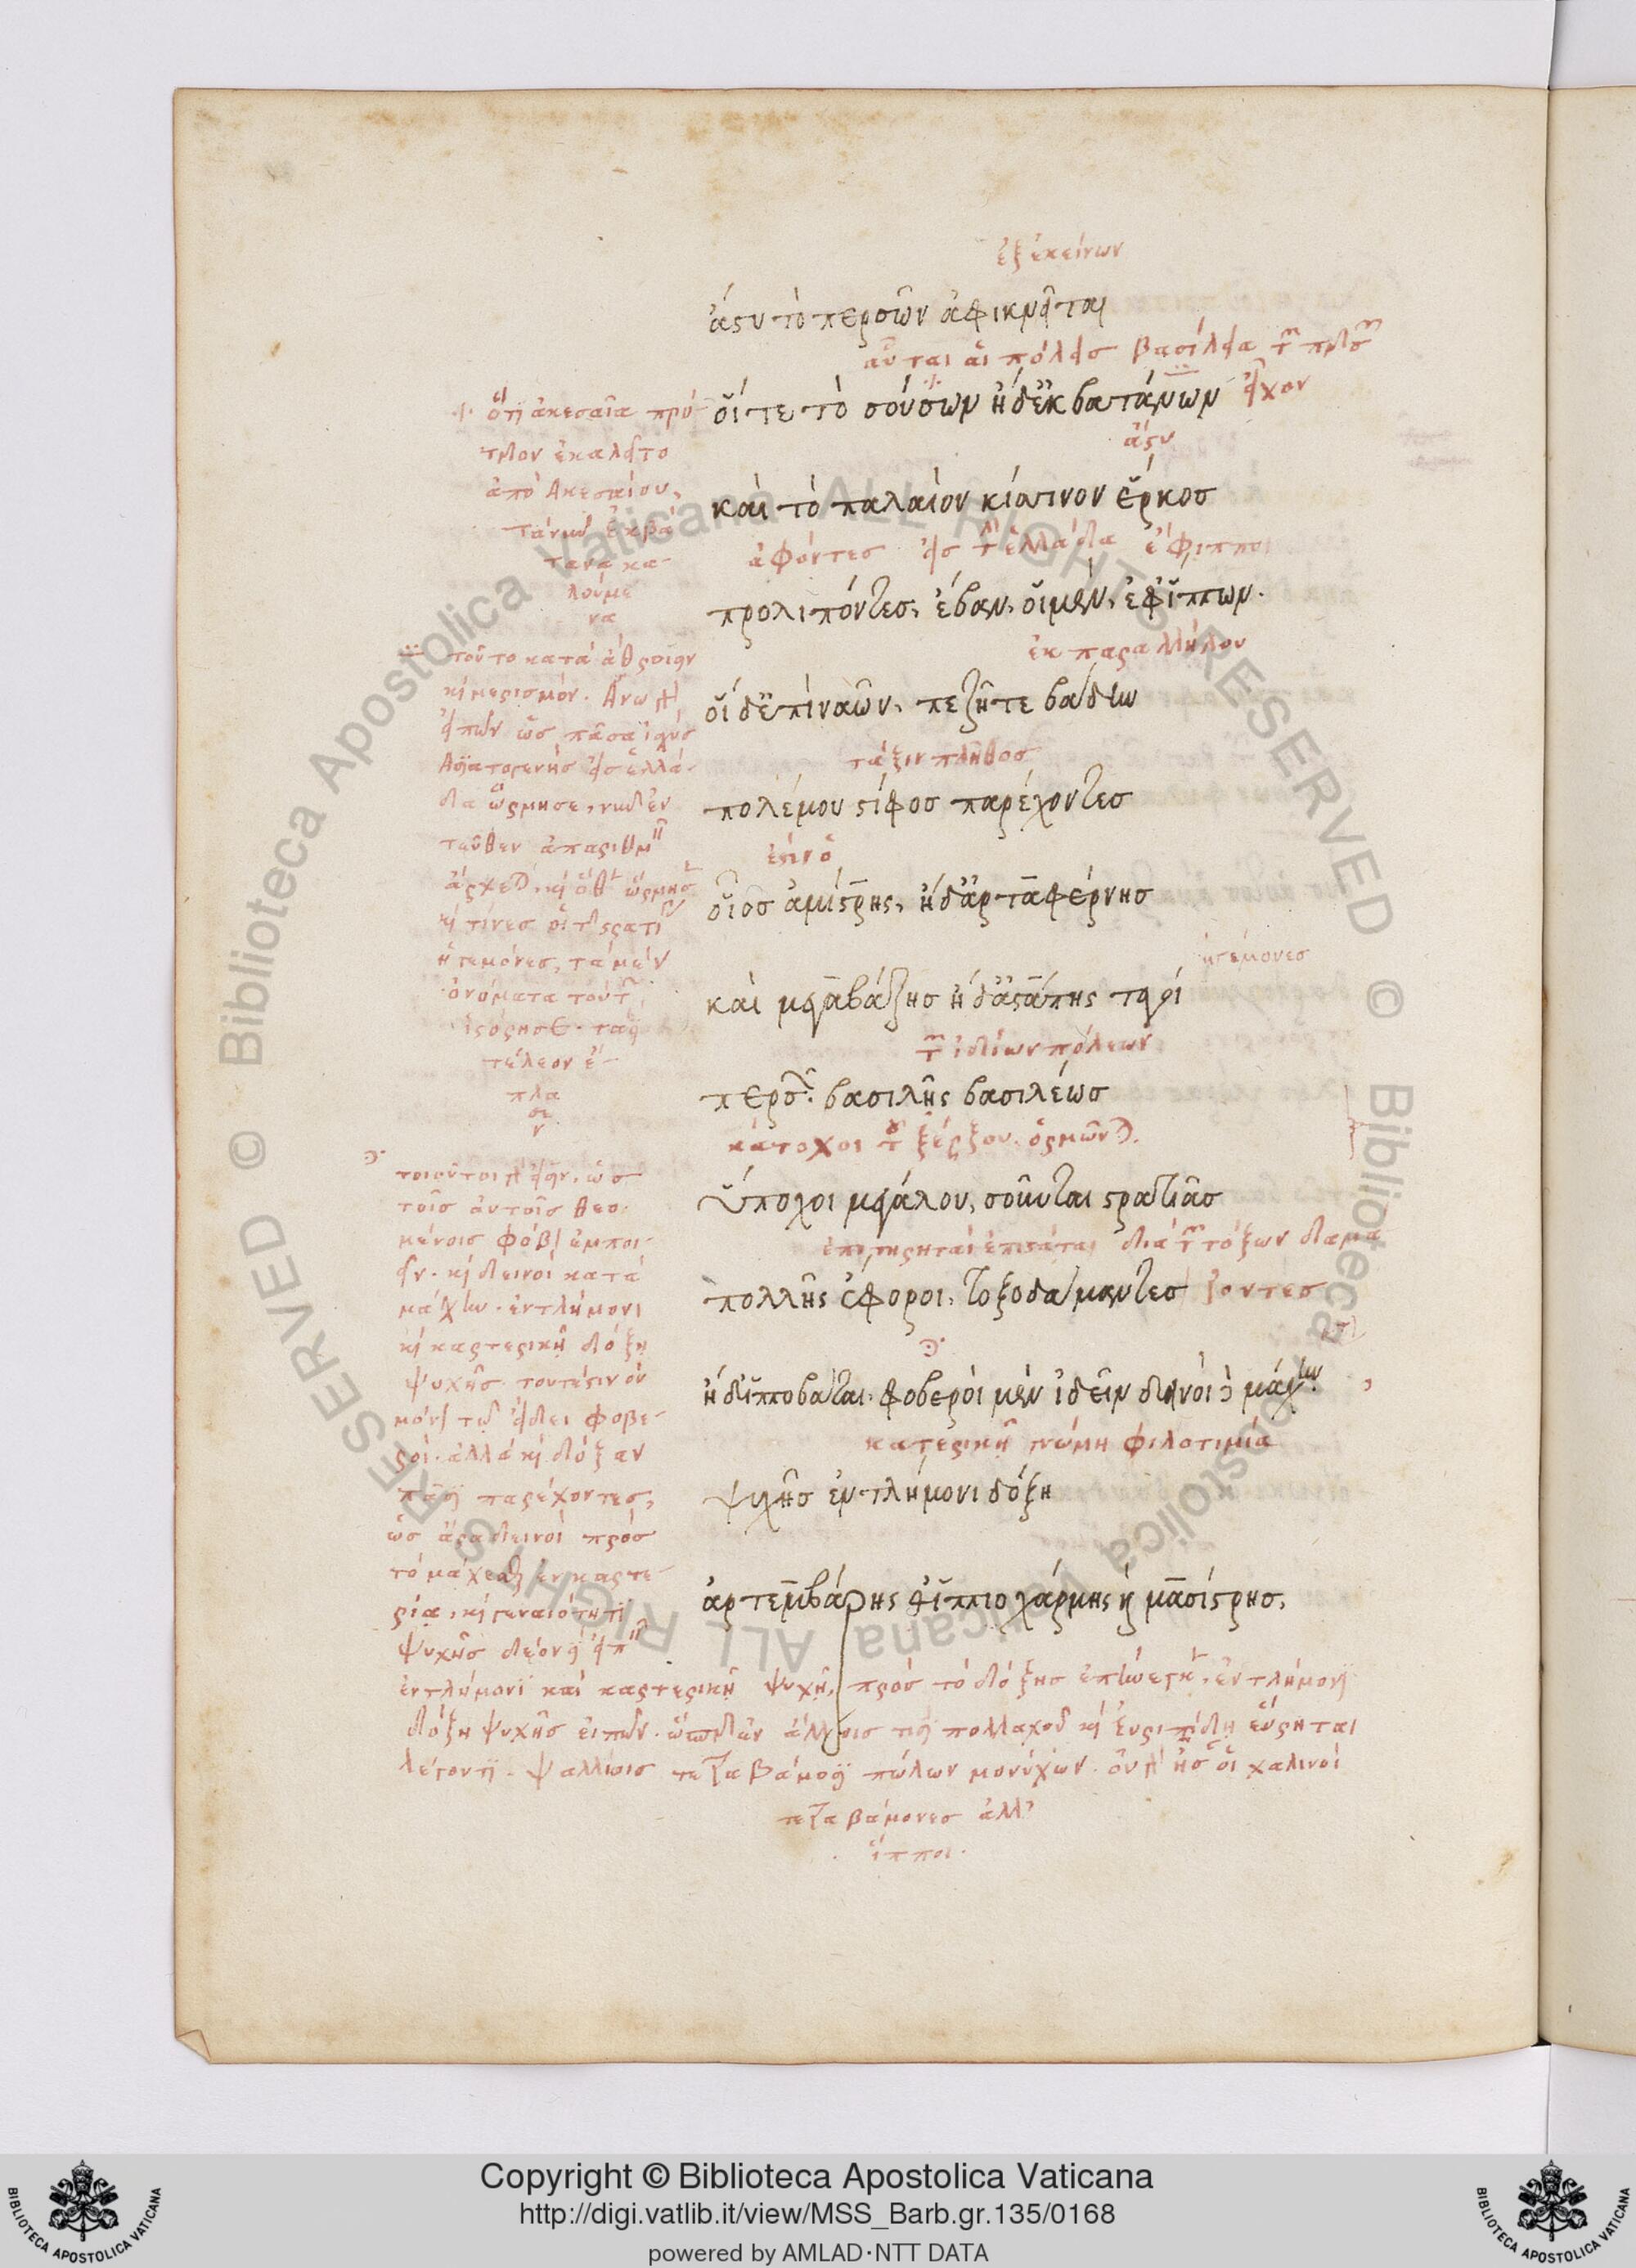 ἐξ ἐκείνων
ἄστυ τὸ περσῶν ἀφικνεῖται
αὗται αἱ πόλεις βασίλεια τῶν περσῶν
οἵτε τὸ σούσων ἠδ' ἐκβατάνων εἶχον
ἄστυ
καὶ τὸ παλαιὸν κίσσινον ἕρκος
ἀφέντες εἰς τὴν ἑλλάδα ἔφιπποι
προλιπόντες, ἔβαν, οἱ μὲν, ἐφ' ἵππων.
ἐκ παραλλήλου
οἱ δ' ἐπὶ ναῶν, πεζοί τε βάδην
τάξιν πλῆθος
πολέμου στίφος παρέχοντες
ἐστὶν ὁ
οἷος ἀμίστρης, ἠδ' ἀρταφέρνης
ἡγεμόνες
καὶ μεγαβάζης ἠδ' ἀστάσπης ταγοί
τῶν ἰδίων πόλεων
περσῶν. βασιλῆς βασιλέως
κάτοχοι τοῦ ξέρξου. ὁρμῶνται.
ὕποχοι μεγάλου, σοῦνται στρατιᾶς
ἐπιτηρηταὶ ἐπιστάται διὰ τῶν τόξων δαμά
πολλῆς ἔφοροι, τοξοδάμαντες ζοντες
ἠδ' ἱπποβάται. φοβεροὶ μὲν ἰδεῖν δεινοὶ δὲ μάχην
καρτερικῇ γνώμῃ φιλοτιμία
ψυχῆς ἐν τλήμονι δόξῃ
ἀρτεμβάρης θ' ἱππιοχάρμης καὶ μασίστρης,
ὅτι ἀκεσαῖα πρό
τερον ἐκαλεῖτο
ἀπὸ Ἀκεσαίου,
τανῦν ἐκβά
τανα κα
λούμε
να
τοῦτο κατὰ ἄθροισιν
καὶ μερισμόν. ἄνω γὰρ
εἰπὼν ὡς πᾶσα ἰσχὺς
Ἀσιατογενὴς εἰς ἑλλά
δα ὥρμησε, νῦν ἐν
τεῦθεν ἀπαριθμεῖν
ἄρχεται, καὶ ὅθεν ὥρμησαν
καὶ τίνες οἱ τοῦ στρατοῦ
ἡγεμόνες, τὰ μὲν
ὀνόματα τούτων
ἱστόρησε. τὰ δὲ
τέλεον ἔ
πλα
σε
ν
τοιοῦτοι γὰρ εἰσὶν, ὡς
τοῖς αὐτοὺς θεω
μένοις φόβον ἐμποι
εῖν. καὶ δεινοὶ κατὰ
μάχην. ἐν τλήμονι
καὶ καρτερικῇ δόξῃ
ψυχῆς. τουτέστιν οὐ
μόνον τῷ εἴδει φοβε
ροὶ. ἀλλὰ καὶ δόξαν
πᾶσι παρέχοντες,
ὡς ἄρα δεινοὶ πρὸς
τὸ μάχεσθαι ἐν καρτε
ρίᾳ, καὶ γεναιότητι
ψυχῆς δέον εἰπεῖν
ἐν τλήμονι καὶ καρτερικῇ ψυχῇ, πρὸς τὸ δόξης ἐπήνεγκεν, ἐν τλήμονι
δόξῃ ψυχῆς εἰπών. ὥσπερ ἂν ἄλλοις τισὶ πολλαχοῦ καὶ Εὐριπίδῃ εὕρηται
λέγοντι. ψαλλίοις τετραβάμοσι πώλων μονύχων. οὐ γὰρ ἦσαν οἱ χαλινοὶ
τετραβάμονες ἀλλ'
ἵπποι.
© Biblioteca Apostolica Vaticana ALL RIGHTS RESERVED © Biblioteca Apostolica Vaticana ALL RIGHTS RESERVED
BIBLIOTECA APOSTOLICA VATICANA
Copyright © Biblioteca Apostolica Vaticana
http://digi.vatlib.it/view/MSS_Barb.gr.135/0168
powered by AMLAD·NTT DATA
BIBLIOTECA APOSTOLICA VATICANA